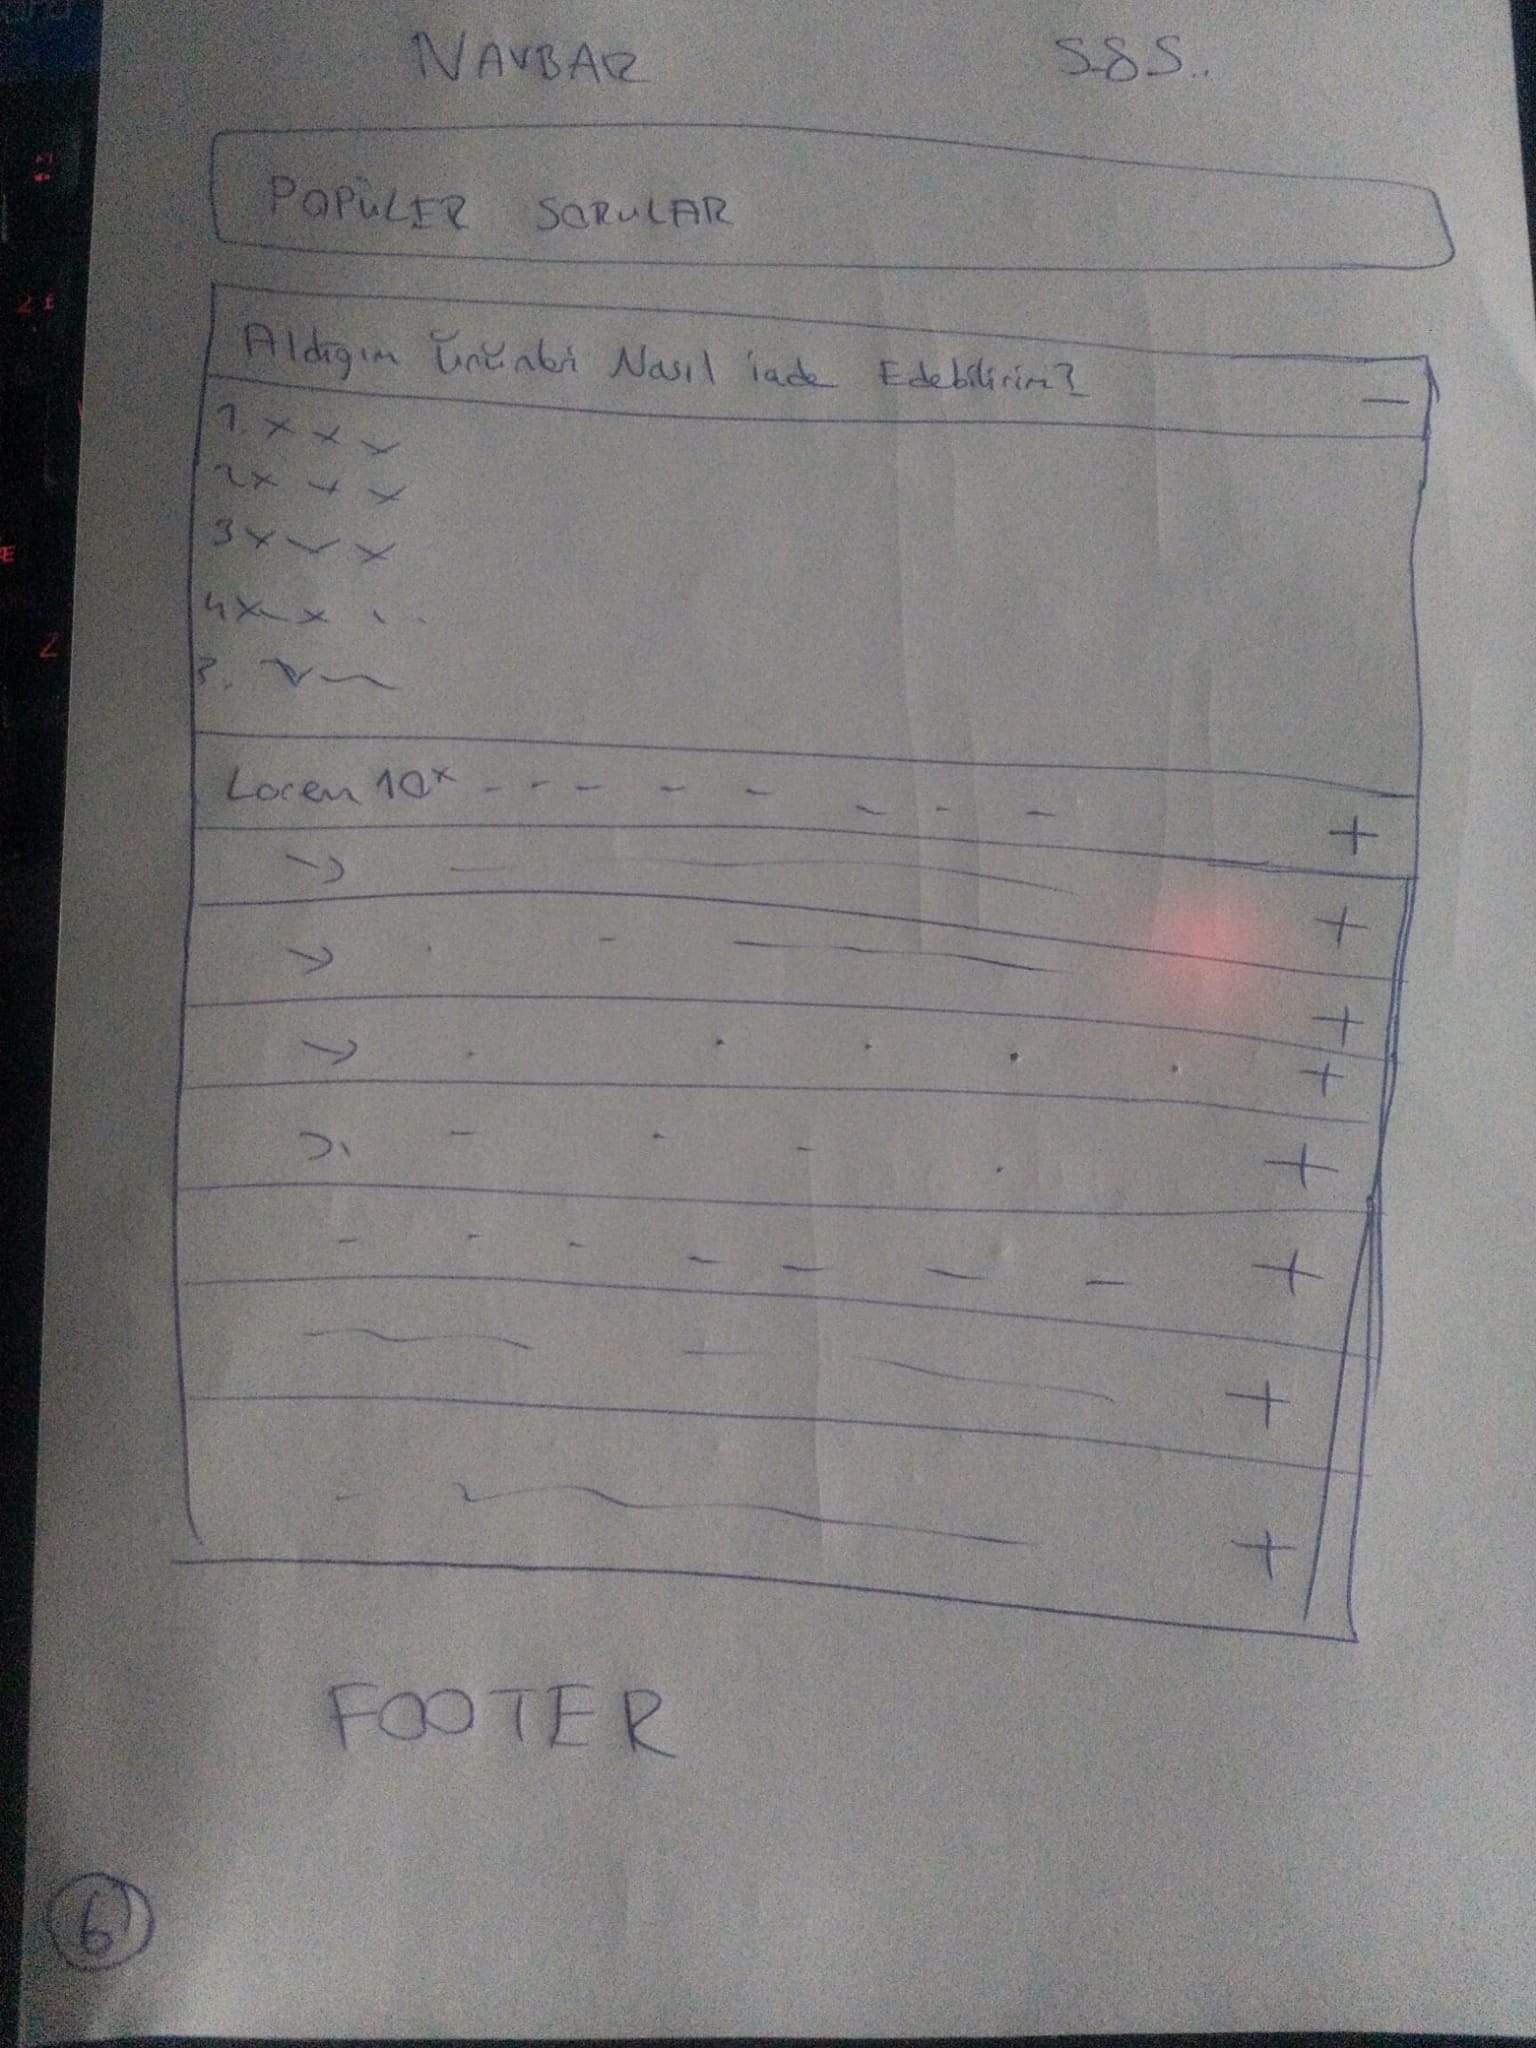 NAVBAR S.S.S..
POPÜLER SORULAR
Aldığım Ürünleri Nasıl iade Edebilirim?
−
1. x x x
2 x x x
3 x x x
4 x x x
Lorem 10x - - - - - - - -
+
+
+
+
+
+
+
+
FOOTER
6